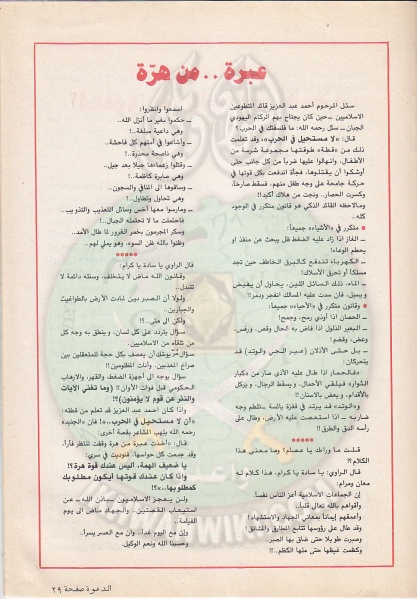 عبرة .. من هرّة
سئل المرحوم أحمد عبد العزيز قائد المتطوعين
الاسلاميين ـ حين كان يجتاح بهم الركام اليهودي
الجبان ـ سئل رحمه الله: ما فلسفتك في الحرب؟
قال: «لا مستحيل في الحرب»، وقد تعلمت
ذلك من «قطة» طوقتها مجموعة شرسة من
الأطفال، وانهالوا عليها ضرباً من كل جانب حتى
أوشكوا أن يقتلوها، فجأة اندفعت بكل قوتها في
حركة جامحة على وجه طفل منهم، فسقط صارخاً،
وكسرت الحصار.. ونجت من هلاك أكيد!!
وملاحظة القائد الذكي هو قانون متكرر في الوجود
كله..
● متكرر في «الأشياء» جميعاً:
ـ الغاز اذا زاد عليه الضغط ظل يبحث عن منفذ أو
يحطم الوعاء!
ـ الكهرباء تندفع كالبرق الخاطف حين تجد
مسلكاً أو تحرق الأسلاك!
ـ الماء، ذلك السائل اللين، يحاول أن يفيض
ويسيل، فان سدت عليه المسالك انفجر ودمر!!
● وقانون متكرر في «الأحياء» جميعاً:
ـ الحصان اذا أوذي جمح، ورمح!
ـ البعير الذلول اذا ضاق به الحال رقص، ورفس،
وعض، وقضم!
ـ بل حتى الأذلان (عير الحي والوتد) قد
يتحركان:
«فالحمار اذا طال عليه الأذى صار من «كبار
الثوار» فيلقي الأحمال، ويسقط الرجال، ويركل
بالأقدام، ويعض بالاسنان!!
«والوتد» قد يرتد في قفزة يائسة ـ تلطم وجه
ضاربه ـ اذا استعصت عليه الأرض، وطال على
رأسه الدق والطرق!!
قلت ما وراءك يا عصام؟ وما معنى هذا
الكلام؟؟
قال الراوي: يا سادة يا كرام، هذا كلام له
معان ومرام:
إن الجماعات الاسلامية أعز الناس نفسا،
وأقواهم بالله تعالى قلبا..
وأعمقهم إيماناً بمعاني الجهاد والاستشهاد!
وقد طال على رؤسها تتابع المطارق والمشانق!
وصبرت طويلا حتى ضاق بها الصبر..
وكظمت غيظها حتى ملها الكظم..!!
اسمعوا وانظروا:
ـ حكموا بغير ما أنزل الله..
وهي داعية مسلمة..!!
ـ وأشاعوا في أمتهم كل فاحشة..
وهي ناصحة محذرة..!
ـ وقتلوا زعماءها جيلا بعد جيل..
وهي صابرة كاظمة..!
ـ وساقوها الى المنافي والسجون..
وهي تحاول وتتطاول..!
ـ ومارسوا معها أخس وسائل التعذيب والتذويب..
فاحتملت ما لا تحتمله الجبال..!
وسكر المجرمون بخمر الغرور لما طال الأمد..
وظنوا بالله ظن السوء، وهو يملي لهم..
قال الراوي يا سادة يا كرام:
وقانون الله ماض لا يتخلف، وسنته دائمة لا
تتبدل..
ولولا أن الصبر دين لمادت الأرض بالطواغيت
والجبارين..
ولكن الى متى..؟!
سؤال يتردد على كل لسان، وينطق به وجه كل
من تلقاه من الاسلاميين..
سؤال يوشك أن يعصف بكل حجة للمتعقلين بين
صراع المعذبين، وأنات المظلومين!!
سؤال يوجه الى أجهزة الضغط، والقهر، والارهاب
الحكومي قبل فوات الأوان!! (وما تغني الآيات
والنذر عن قوم لا يؤمنون)؟؟
واذا كان أحمد عبد العزيز قد تعلم من قطته:
«أن لا مستحيل في الحرب..» فان «الجنيد»
رحمه الله يلهب المشاعر بقصة أخرى..
قال: «أخذت عبرة من هرة وقفت تنتظر فأراً،
وقد جمعت كل حواسها، فنوديت في سري:
يا ضعيف الهمة، أليس عندك قوة هرة؟!
واذا كان عندك قوتها أيكون مطلوبك
كمطلوبها..»؟!
ولن يعجز الاسلاميون ـ بإذن الله ـ عن
استيعاب القصتين، والجهاد ماض الى يوم
القيامة..
وإن مع اليوم غداً.. وان مع العسر يسرا..
وحسبنا الله ونعم الوكيل.
الدعوة صفحة ٢٩